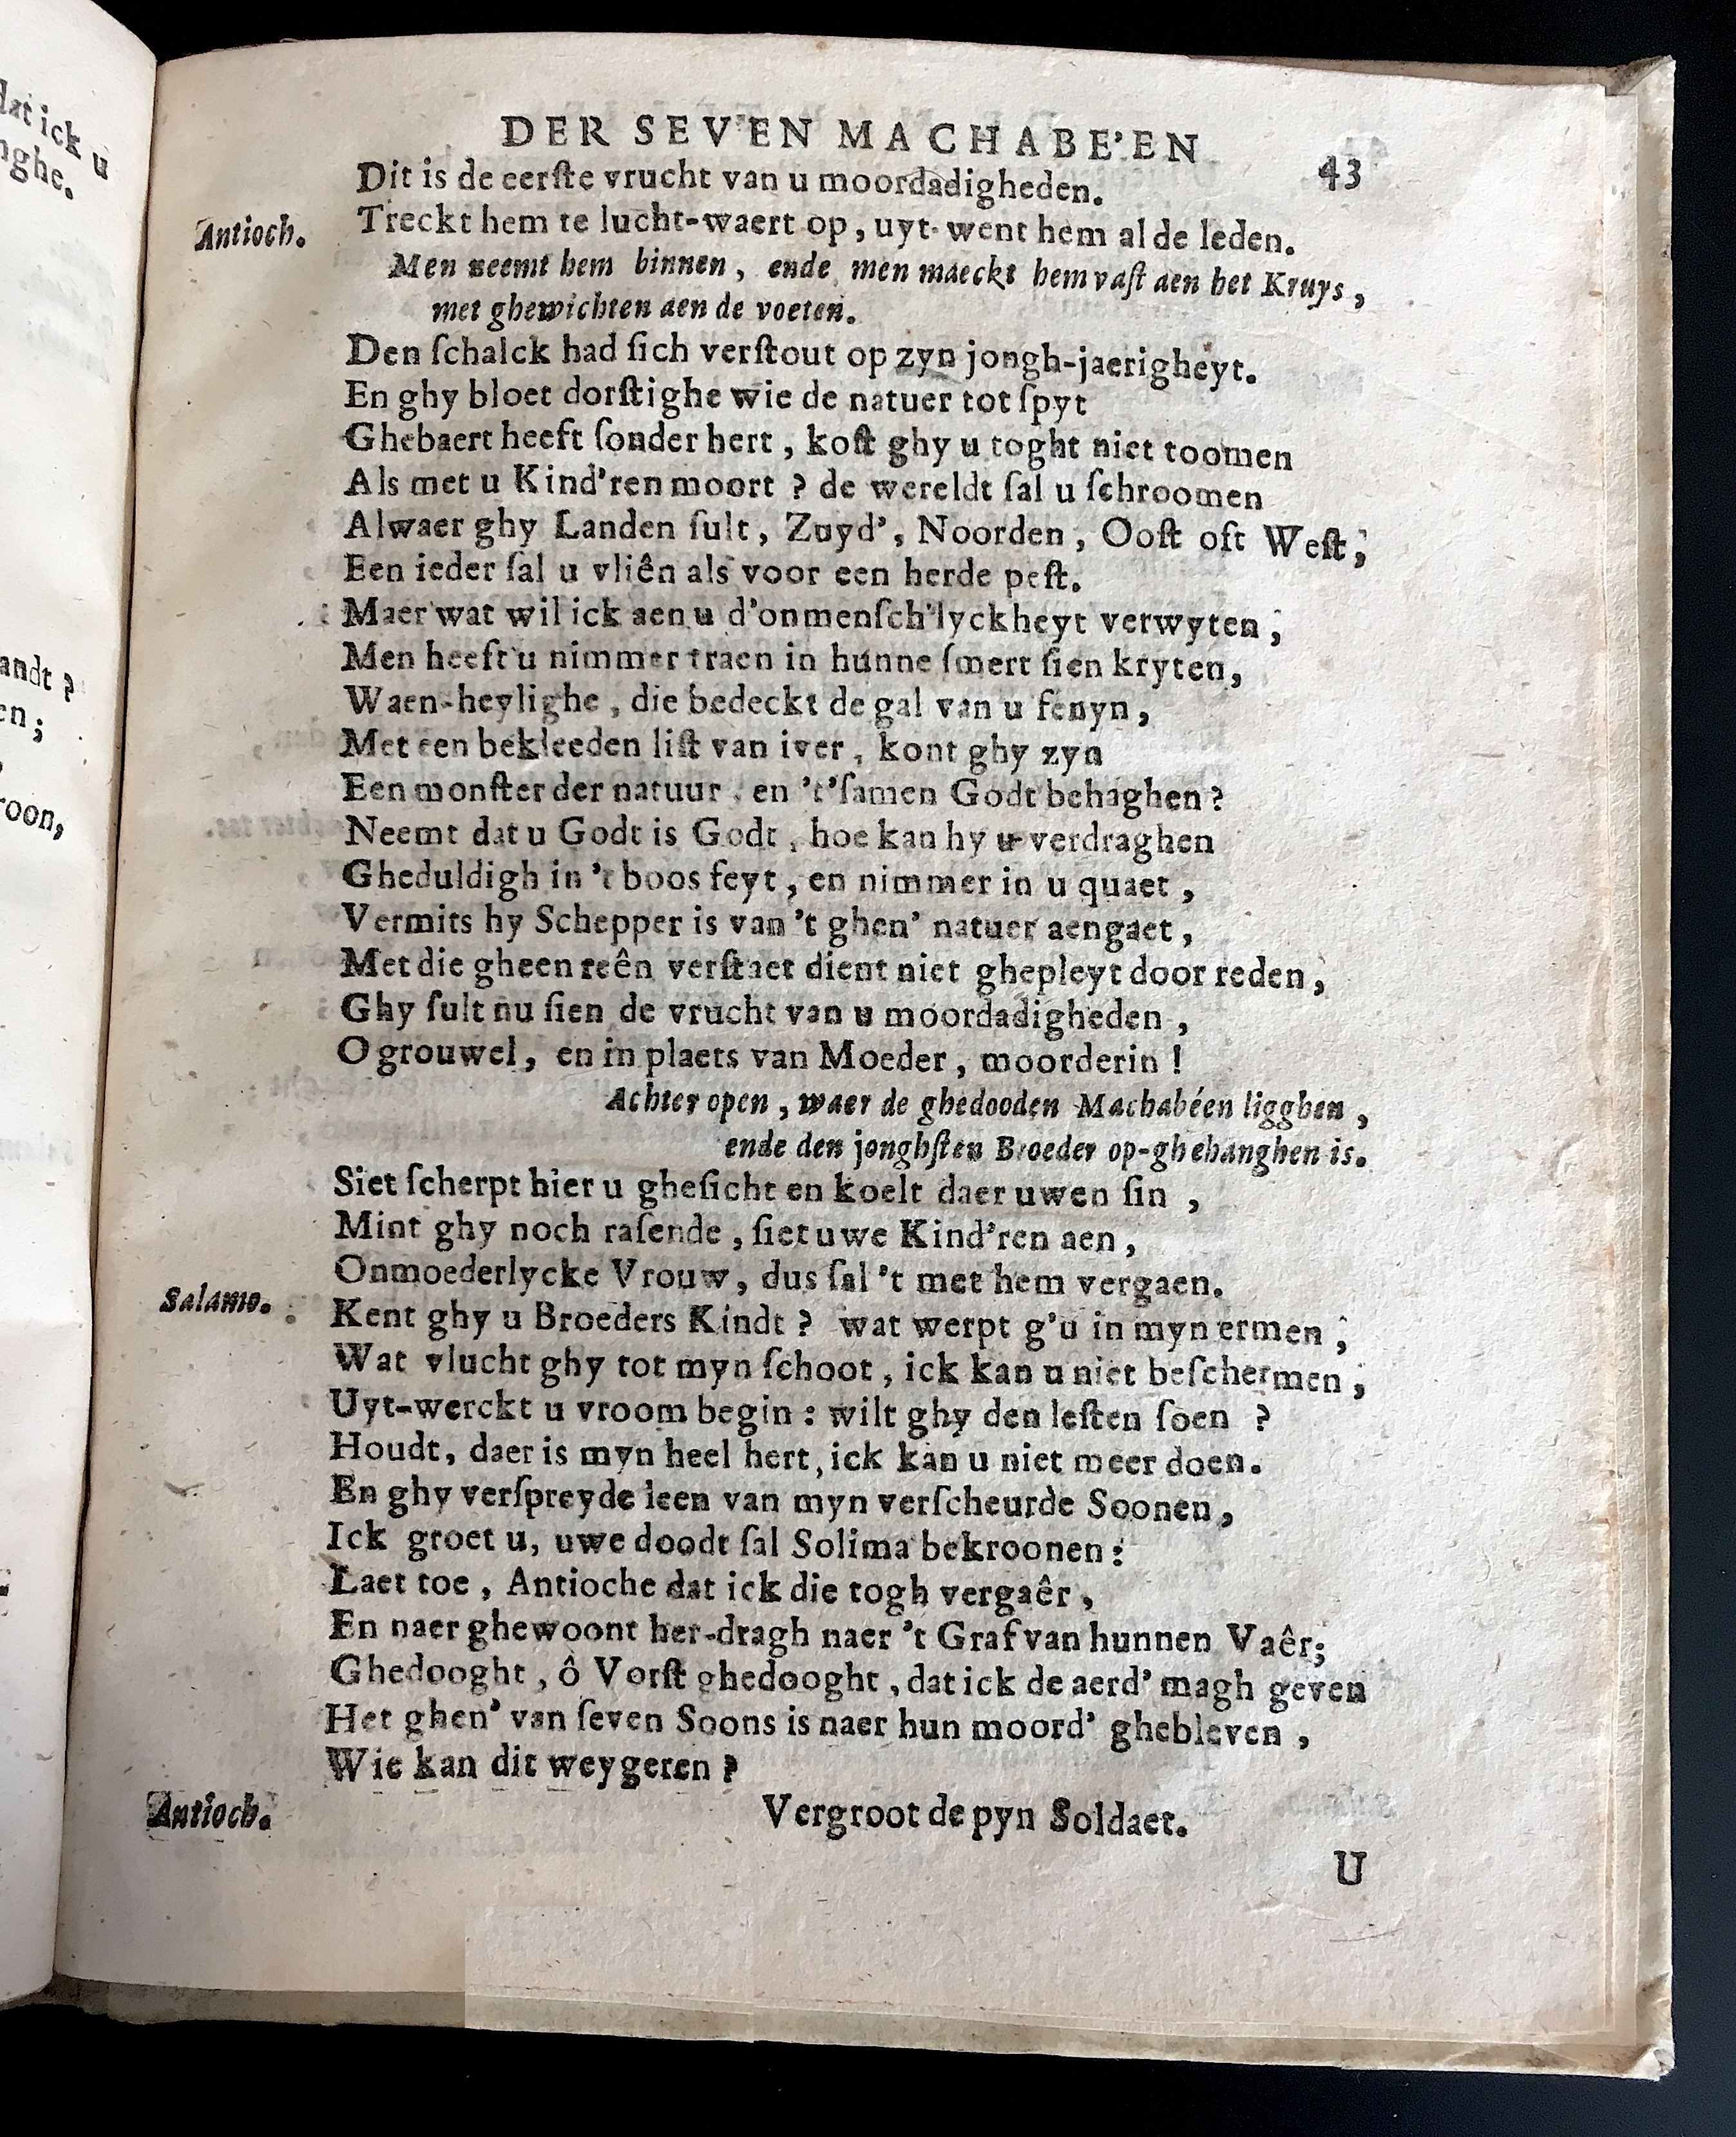 dat ick u
nghe.
andt ?
en;
roon,
DER SEV'EN MACHABE'EN
43
Dit is de eerſte vrucht van u moordadigheden.
Antioch. Treckt hem te lucht-waert op, uyt-went hem al de leden.
Men neemt hem binnen, ende men maeckt hem vaſt aen het Kruys,
met ghewichten aen de voeten.
Den ſchalck had ſich verſtout op zyn jongh-jaerigheyt.
En ghy bloet dorſtighe wie de natuer tot ſpyt
Ghebaert heeft ſonder hert, koſt ghy u toght niet toomen
Als met u Kind'ren moort ? de wereldt ſal u ſchroomen
Alwaer ghy Landen ſult, Zuyd', Noorden, Ooſt oft Weſt;
Een ieder ſal u vliên als voor een herde peſt.
Maer wat wil ick aen u d'onmenſch'lyckheyt verwyten;
Men heeft u nimmer traen in hunne ſmert ſien kryten,
Waen-heylighe, die bedeckt de gal van u fenyn,
Met een bekleeden liſt van iver, kont ghy zyn
Een monſter der natuur, en 't'ſamen Godt behaghen?
Neemt dat u Godt is Godt, hoe kan hy u verdraghen
Gheduldigh in 't boos feyt, en nimmer in u quaet,
Vermits hy Schepper is van 't ghen' natuer aengaet,
Met die gheen reên verſtaet dient niet ghepleyt door reden,
Ghy ſult nu ſien de vrucht van u moordadigheden,
O grouwel, en in plaets van Moeder, moorderin !
Achter open, waer de ghedooden Machabéen ligghen,
ende den jonghſten Broeder op-ghehanghen is.
Siet ſcherpt hier u gheſicht en koelt daer uwen ſin,
Mint ghy noch raſende, ſiet uwe Kind'ren aen,
Onmoederlycke Vrouw, dus ſal 't met hem vergaen.
Salamo. Kent ghy u Broeders Kindt ? wat werpt g'u in myn ermen;
Wat vlucht ghy tot myn ſchoot, ick kan u niet beſchermen;
Uyt-werckt u vroom begin : wilt ghy den leſten ſoen ?
Houdt, daer is myn heel hert, ick kan u niet meer doen.
En ghy verſpreyde leen van myn verſcheurde Soonen,
Ick groet u, uwe doodt ſal Solima bekroonen:
Laet toe, Antioche dat ick die togh vergaêr,
En naer ghewoont her-dragh naer 't Graf van hunnen Vaêr;
Ghedooght, ô Vorſt ghedooght, dat ick de aerd' magh geven
Het ghen' van ſeven Soons is naer hun moord' ghebleven,
Wie kan dit weygeren ?
Antioch. Vergroot de pyn Soldaet.
U